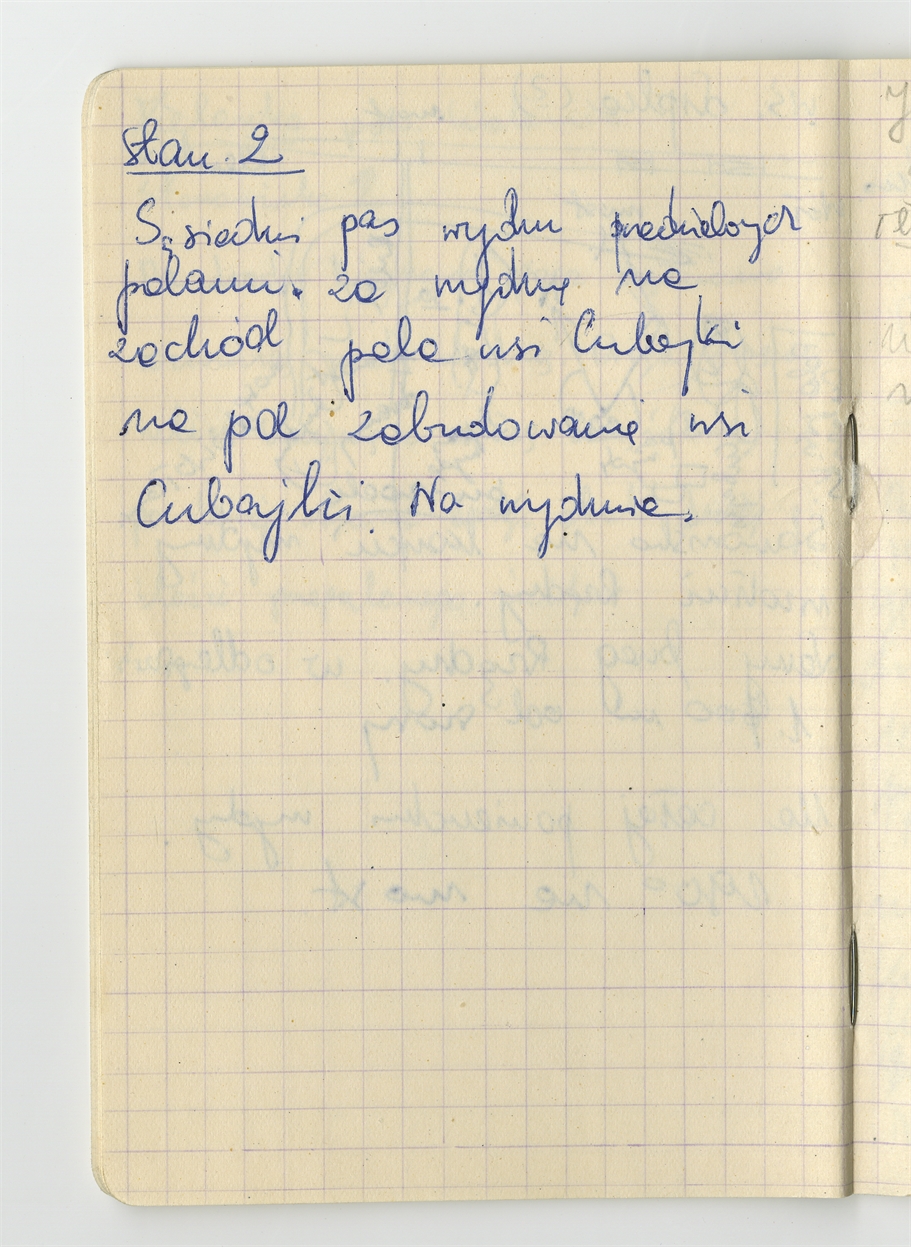 Stan. 2
Sąsiedni pas wydm przedzielonych
polami. za wydmę na
zachód pola wsi Cubajki
na pd zabudowanie wsi
Cubajki. Na wydmie.